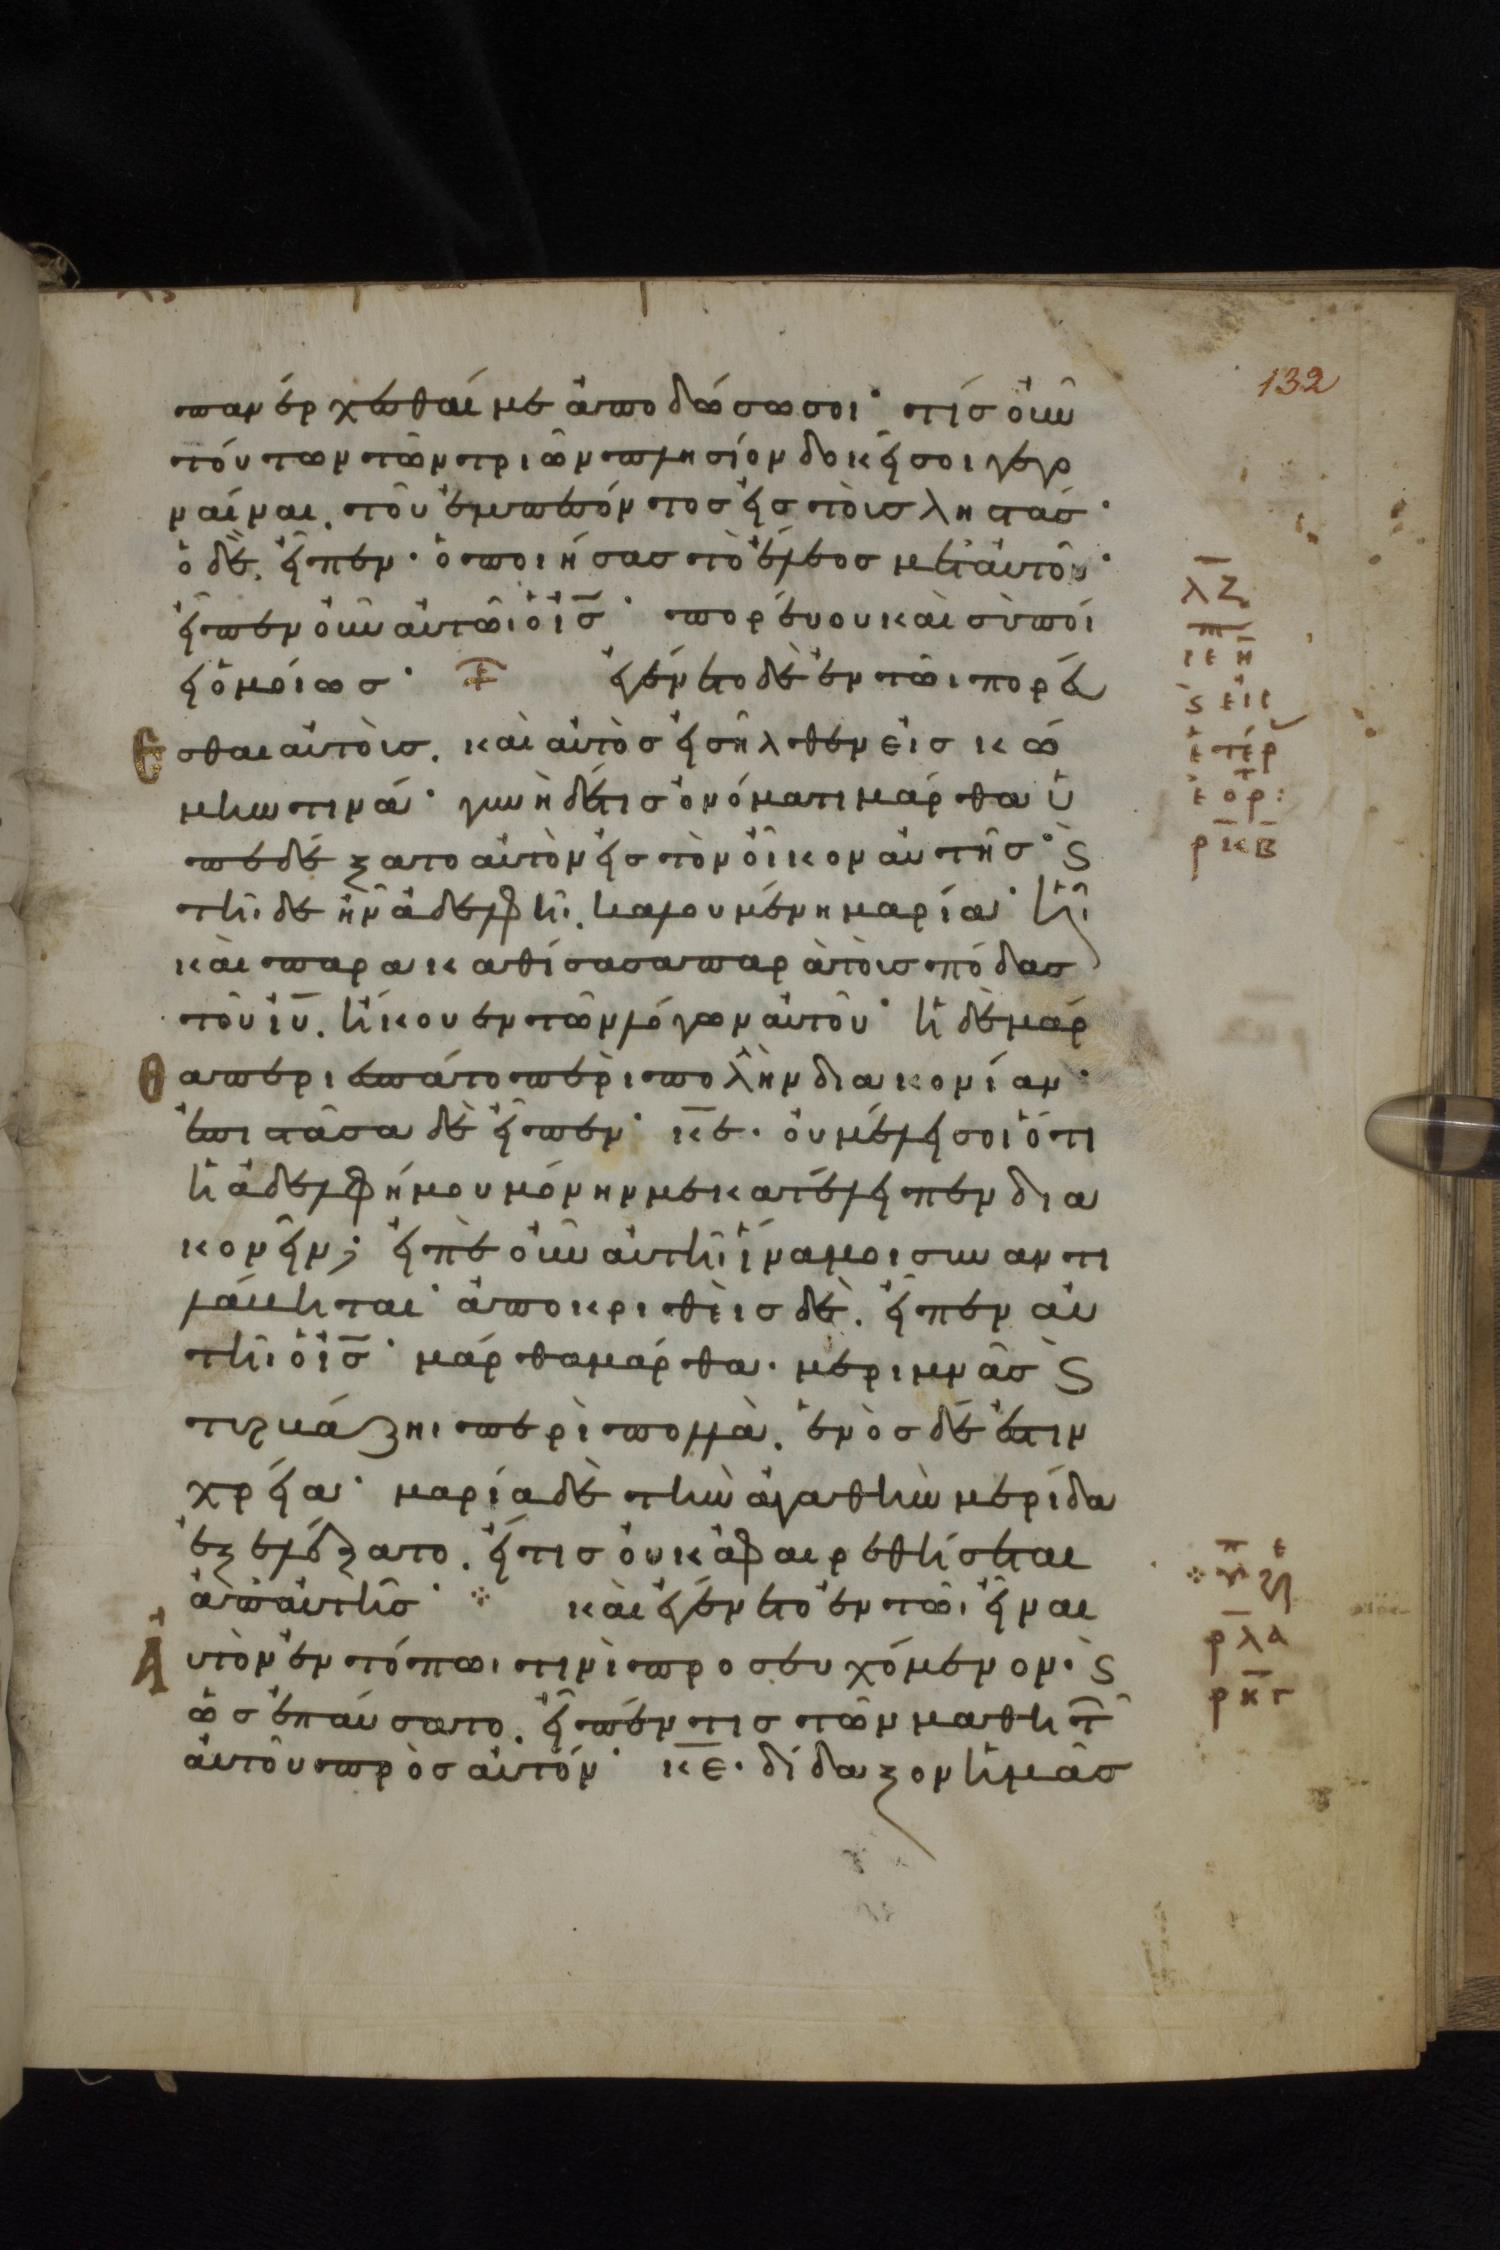 132
πανέρχεσθαί με ἀποδώσω σοι· τίς οὖν
τούτων τῶν τριῶν πλησίον δοκεῖ σοι γεγο
ναίναι. τοῦ ἐμπεσόντος εἰς τοὺς ληστάς·
ὁ δὲ. εἶπεν· ὁ ποιήσας τὸ ἔλεος μετ' αὐτοῦ·
εἶπεν οὖν αὐτῶι ὁ ἰ̅ς̅· πορεύου καὶ σὺ ποί
ει ὁμοίως· ἐγένετο δὲ ἐν τῶι πορεύε
σθαι αὐτοὺς. καὶ αὐτὸς εἰσῆλθεν εἰς κώ
μην τινά· γυνὴ δέ τις ὀνόματι μάρθα ὑ
πεδέξατο αὐτὸν εἰς τὸν οἶκον αὐτῆς· ϛ̀
τῆιδε ἦν ἀδελφὴ. καλουμένη μαρία· ἣ
καὶ παρακαθίσασα παρὰ τοὺς πόδας
τοῦ ἰ̅υ̅. ἤκουεν τῶν λόγων αὐτοῦ· ἡ δὲ μάρ
θα περιεσπάτο περὶ πολλὴν διακονίαν·
ἐπιστᾶσα δὲ εἶπεν· κ̅ε̅. οὐ μέλει σοι ὅτι
ἡ ἀδελφή μου μόνην με κατέλειπεν δια
κονεῖν; εἰπὲ οὖν αὐτῆι ἵνα μοι συναντι
λάβηται· ἀποκριθεὶς δὲ. εἶπεν αὐ
τῆι ὁ ἰ̅ς̅· μάρθα μάρθα. μεριμνᾶς ϛ̀
τυρβάζηι περὶ πολλὰ. ἑνὸς δέ ἐστιν
χρεία· μαρία δὲ τὴν ἀγαθὴν μερίδα
ἐξελέξατο. ἥτις οὐκ ἀφαιρεθήσεται
ἀπ' αὐτῆς· καὶ ἐγένετο ἐν τῶι εἶναι
αὐτὸν ἐν τόπωι τινὶ προσευχόμενον. ϛ̀
ὡς ἐπαύσατο. εἶπέν τις τῶν μαθητ̅
αὐτοῦ πρὸς αὐτόν· κ̅ε̅. δίδαξον ἡμᾶς
λ̅ζ̅
ρ̅κ̅β̅
ρ̅λ̅α̅
ρ̅κ̅γ̅